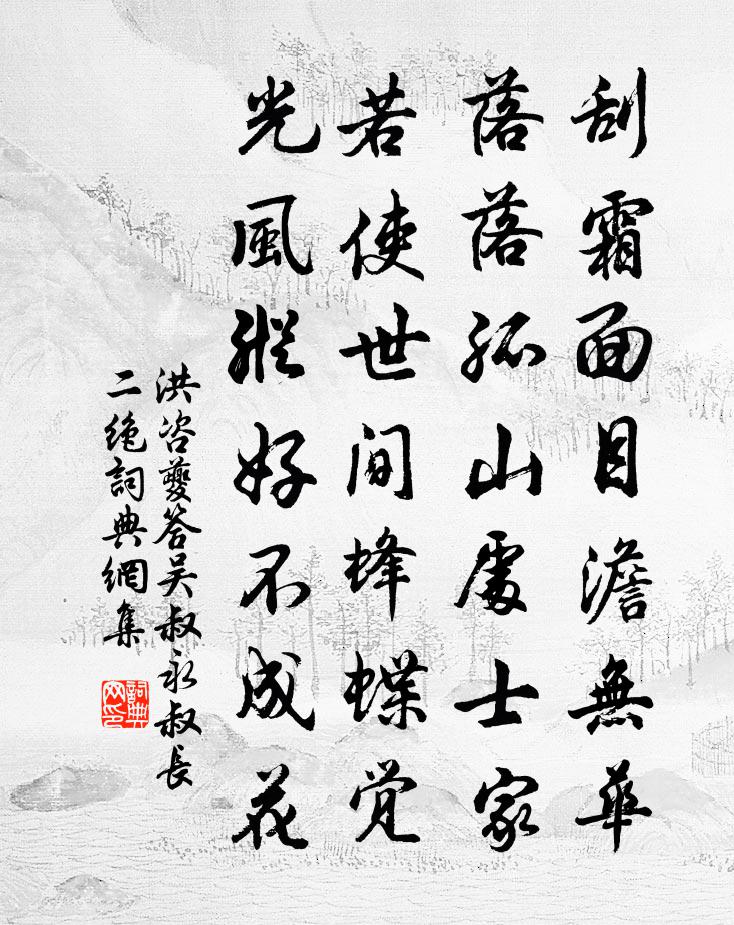 刮霜面目澹無華
落落孤山處士家
若使世间蜂蝶觉
光風縱好不成花
洪咨夔答吴叔永叔長
二绝詞典網集
詞典
网印